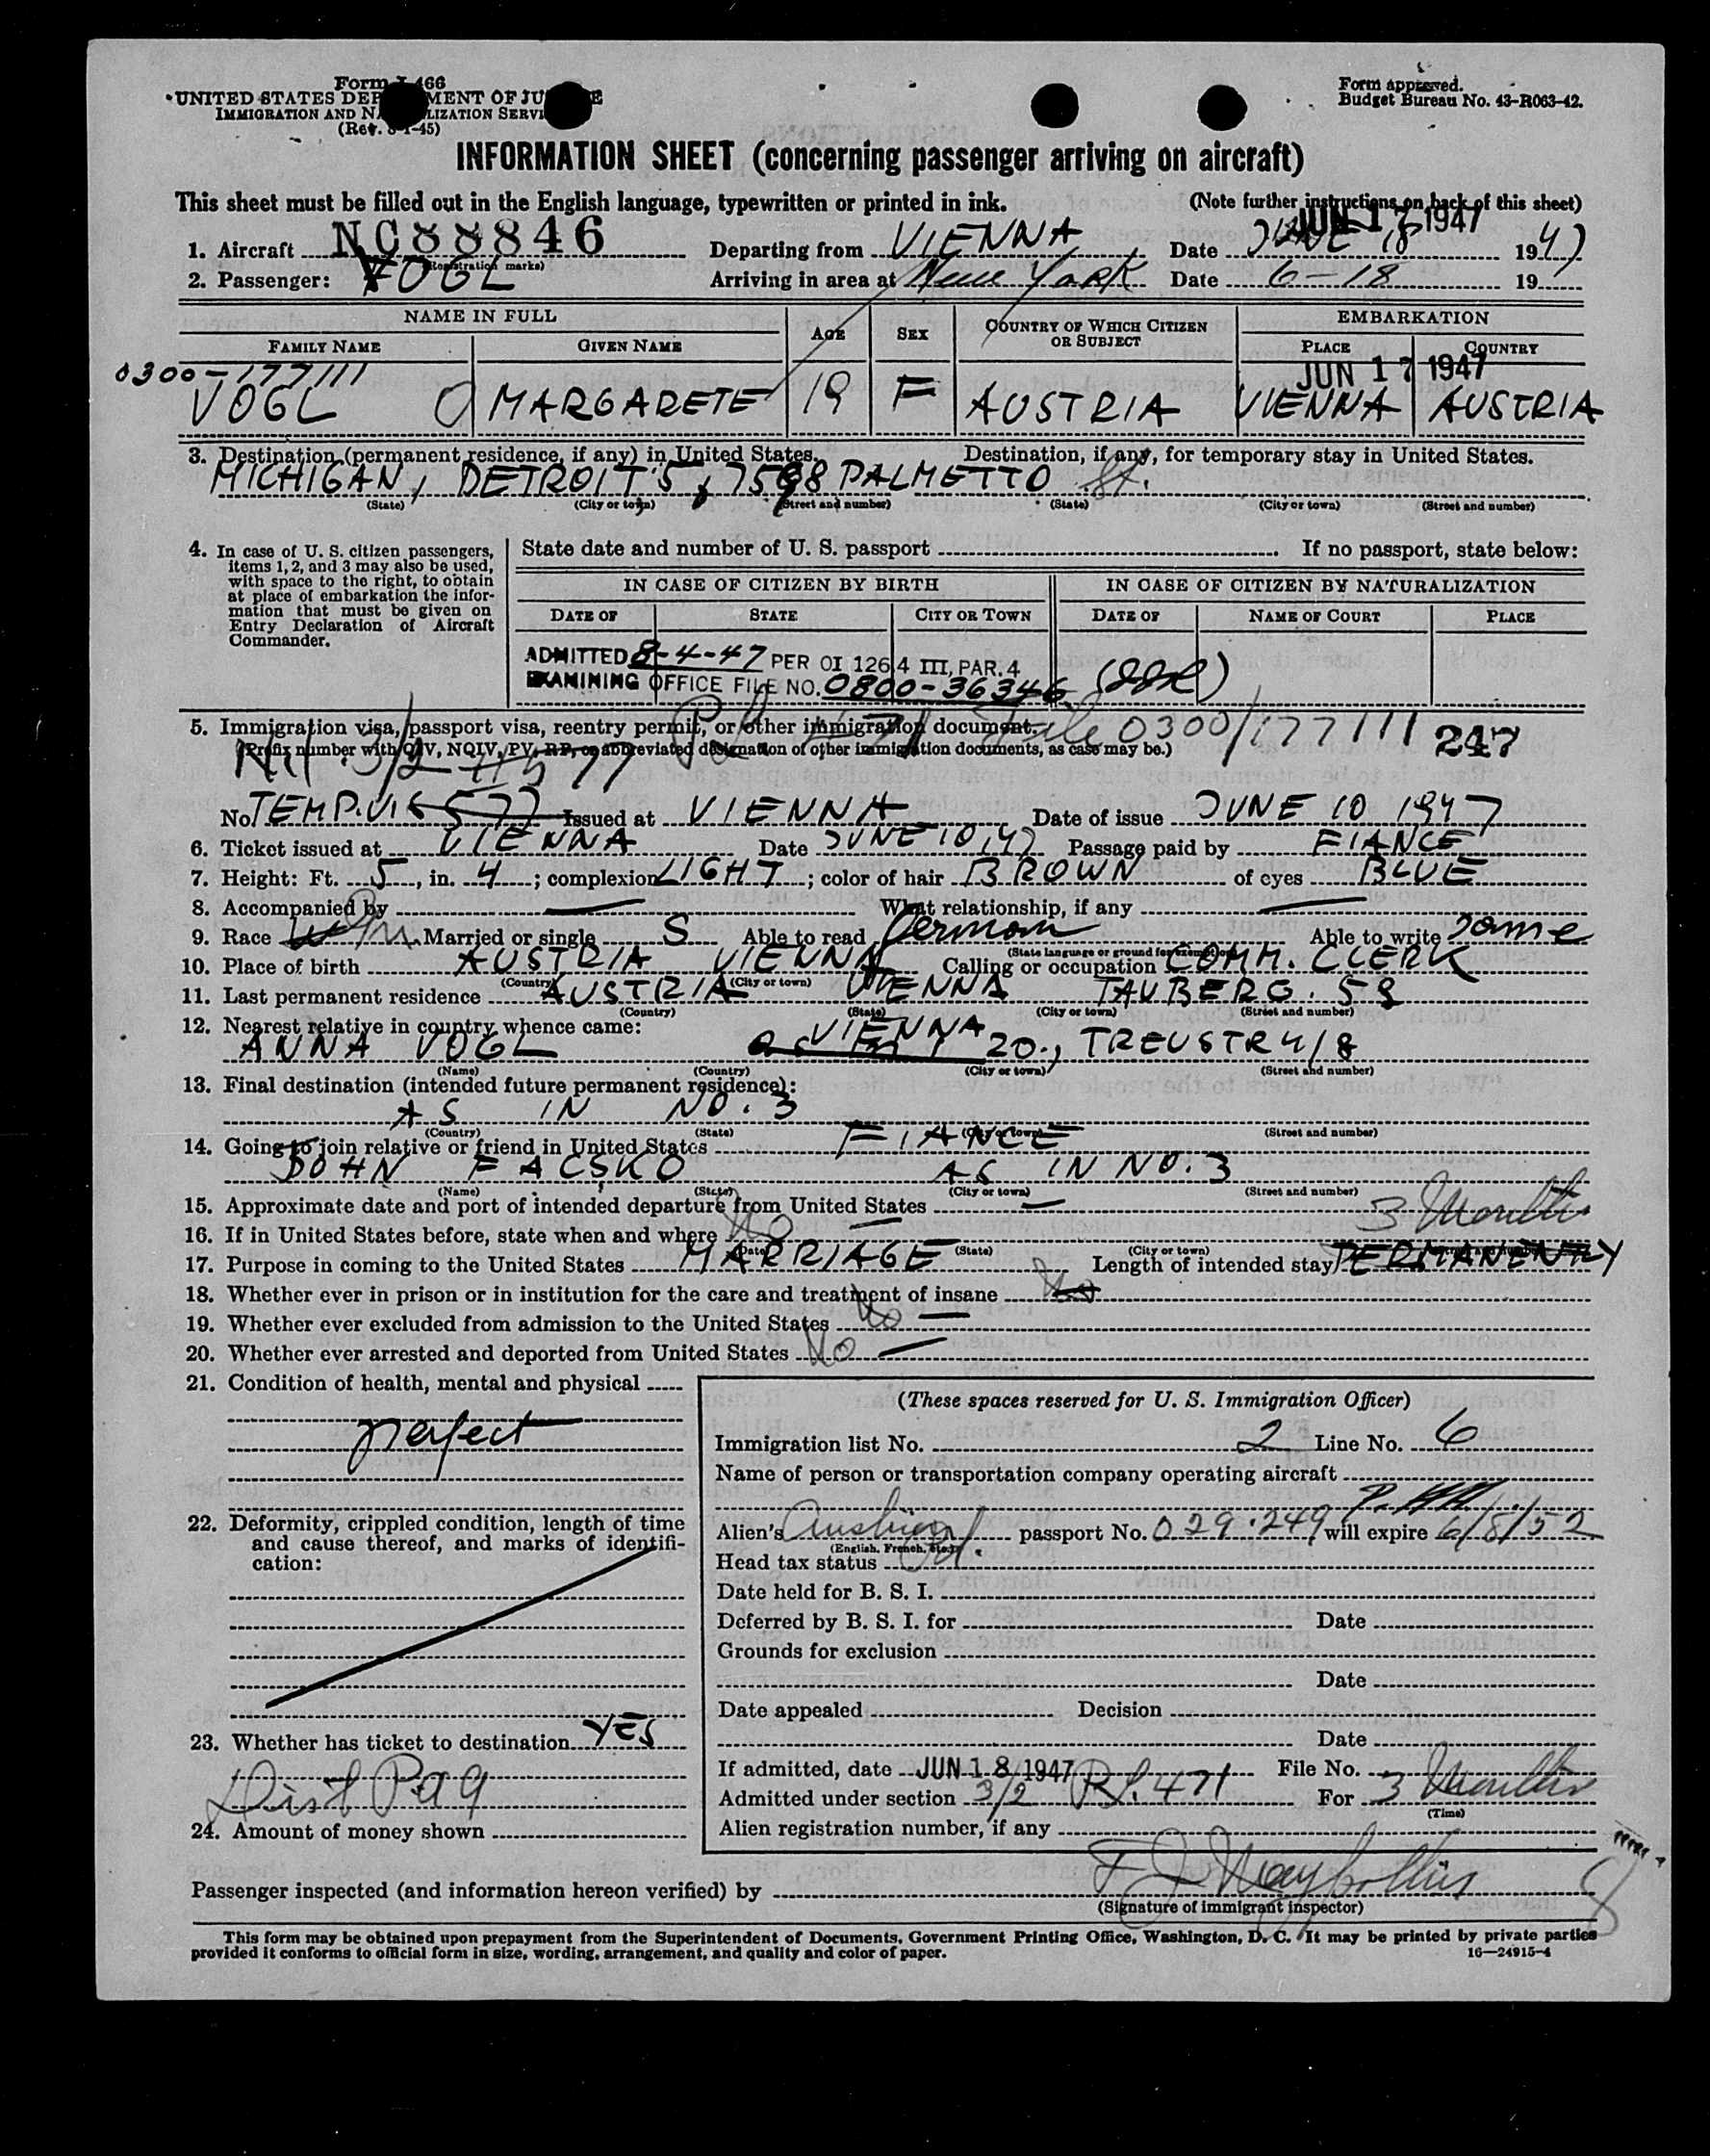 Form I-466
UNITED STATES DEPARTMENT OF JUSTICE
IMMIGRATION AND NATURALIZATION SERVICE
(Rev. -45)
Form approved.
Budget Bureau No. 43-R063-42.
INFORMATION SHEET (concerning passenger arriving on aircraft)
This sheet must be filled out in the English language, typewritten or printed in ink. (Note further instructions on back of this sheet)
JUN 17 1947
1. Aircraft NC88846 Departing from VIENNA Date JUNE 18 1947
(Registration marks)
2. Passenger: VOGL Arriving in area at New York Date 6-18 19
NAME IN FULL AGE SEX COUNTRY OF WHICH CITIZEN OR SUBJECT EMBARKATION
FAMILY NAME GIVEN NAME PLACE COUNTRY
0300-177111 JUN 17 1947
VOGL MARGARETE 19 F AUSTRIA VIENNA AUSTRIA
3. Destination (permanent residence, if any) in United States. Destination, if any, for temporary stay in United States.
MICHIGAN, DETROIT 5, 7598 PALMETTO St.
(State) (City or town) (Street and number) (State) (City or town) (Street and number)
4. In case of U. S. citizen passengers, items 1, 2, and 3 may also be used, with space to the right, to obtain at place of embarkation the information that must be given on Entry Declaration of Aircraft Commander.
State date and number of U. S. passport If no passport, state below:
IN CASE OF CITIZEN BY BIRTH IN CASE OF CITIZEN BY NATURALIZATION
DATE OF STATE CITY OR TOWN DATE OF NAME OF COURT PLACE
ADMITTED 8-4-47 PER OI 126.4 III, PAR. 4
EXAMINING OFFICE FILE NO. 0800-36346
5. Immigration visa, passport visa, reentry permit, or other immigration document. File 0300/177111 247
(Prefix number with QIV, NQIV, PV, RP, or abbreviated designation of other immigration documents, as case may be.)
3/2
No. TEMP.VIS 577 Issued at VIENNA Date of issue JUNE 10 1947
6. Ticket issued at VIENNA Date JUNE 10, 47 Passage paid by FIANCE
7. Height: Ft. 5, in. 4; complexion LIGHT; color of hair BROWN of eyes BLUE
8. Accompanied by — What relationship, if any —
9. Race Married or single S Able to read German Able to write Same
(State language or ground for exemption)
10. Place of birth AUSTRIA VIENNA Calling or occupation COMM. CLERK
(Country) (City or town)
11. Last permanent residence AUSTRIA VIENNA TAUBERG. 59
(Country) (State) (City or town) (Street and number)
12. Nearest relative in country whence came:
ANNA VOGL VIENNA 20., TREUSTR 4/8
(Name) (Country) (City or town) (Street and number)
13. Final destination (intended future permanent residence):
AS IN NO. 3
(Country) (State) (City or town) (Street and number)
14. Going to join relative or friend in United States FIANCE
JOHN FACSKO AS IN NO. 3
(Name) (State) (City or town) (Street and number)
15. Approximate date and port of intended departure from United States — 3 Months
16. If in United States before, state when and where No —
(Date) (State) (City or town)
17. Purpose in coming to the United States MARRIAGE Length of intended stay PERMANENTLY
18. Whether ever in prison or in institution for the care and treatment of insane No
19. Whether ever excluded from admission to the United States No —
20. Whether ever arrested and deported from United States No —
21. Condition of health, mental and physical
perfect
22. Deformity, crippled condition, length of time and cause thereof, and marks of identification:
23. Whether has ticket to destination YES
24. Amount of money shown
(These spaces reserved for U. S. Immigration Officer)
Immigration list No. 2 Line No. 6
Name of person or transportation company operating aircraft
Alien's Austrian passport No. 029.249 will expire 6/8/52
(English, French, etc.)
Head tax status
Date held for B. S. I.
Deferred by B. S. I. for Date
Grounds for exclusion
Date
Date appealed Decision
Date
If admitted, date JUN 18 1947 File No.
Admitted under section 3/2 P.L. 471 For 3 Months
(Time)
Alien registration number, if any
Passenger inspected (and information hereon verified) by
(Signature of immigrant inspector)
This form may be obtained upon prepayment from the Superintendent of Documents, Government Printing Office, Washington, D. C. It may be printed by private parties
provided it conforms to official form in size, wording, arrangement, and quality and color of paper. 16—24915-4